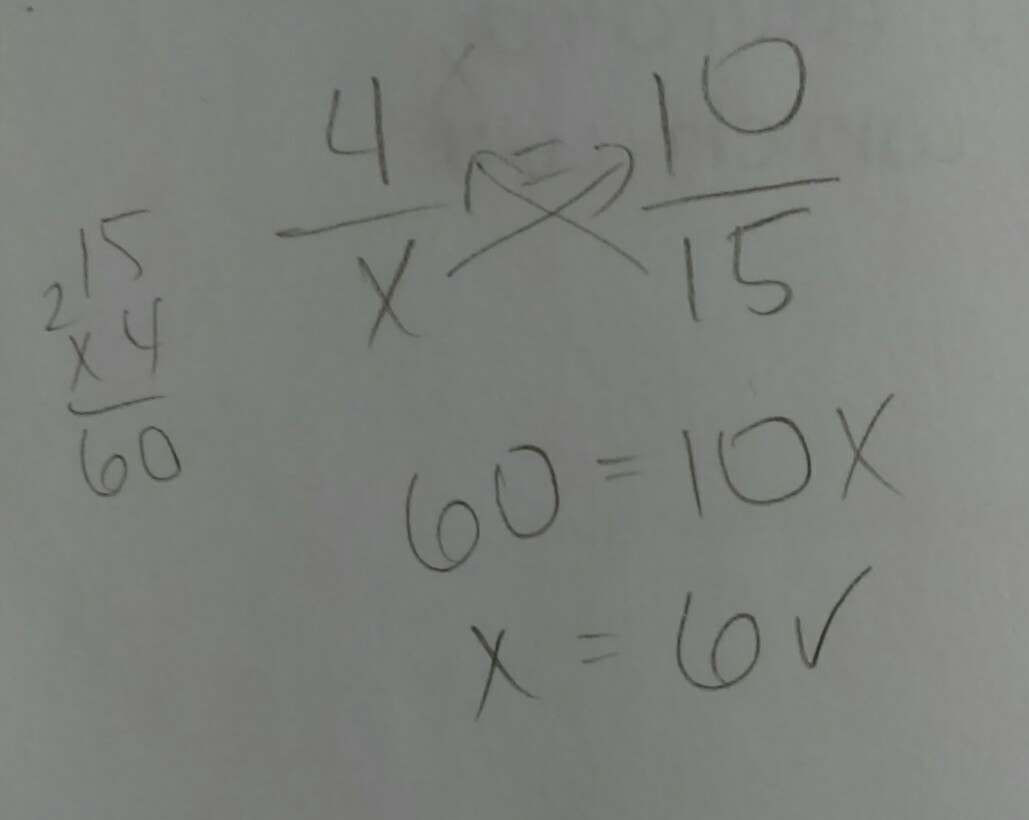 4/x = 10/15
15
2
x 4
60
60 = 10x
x = 6 ✓